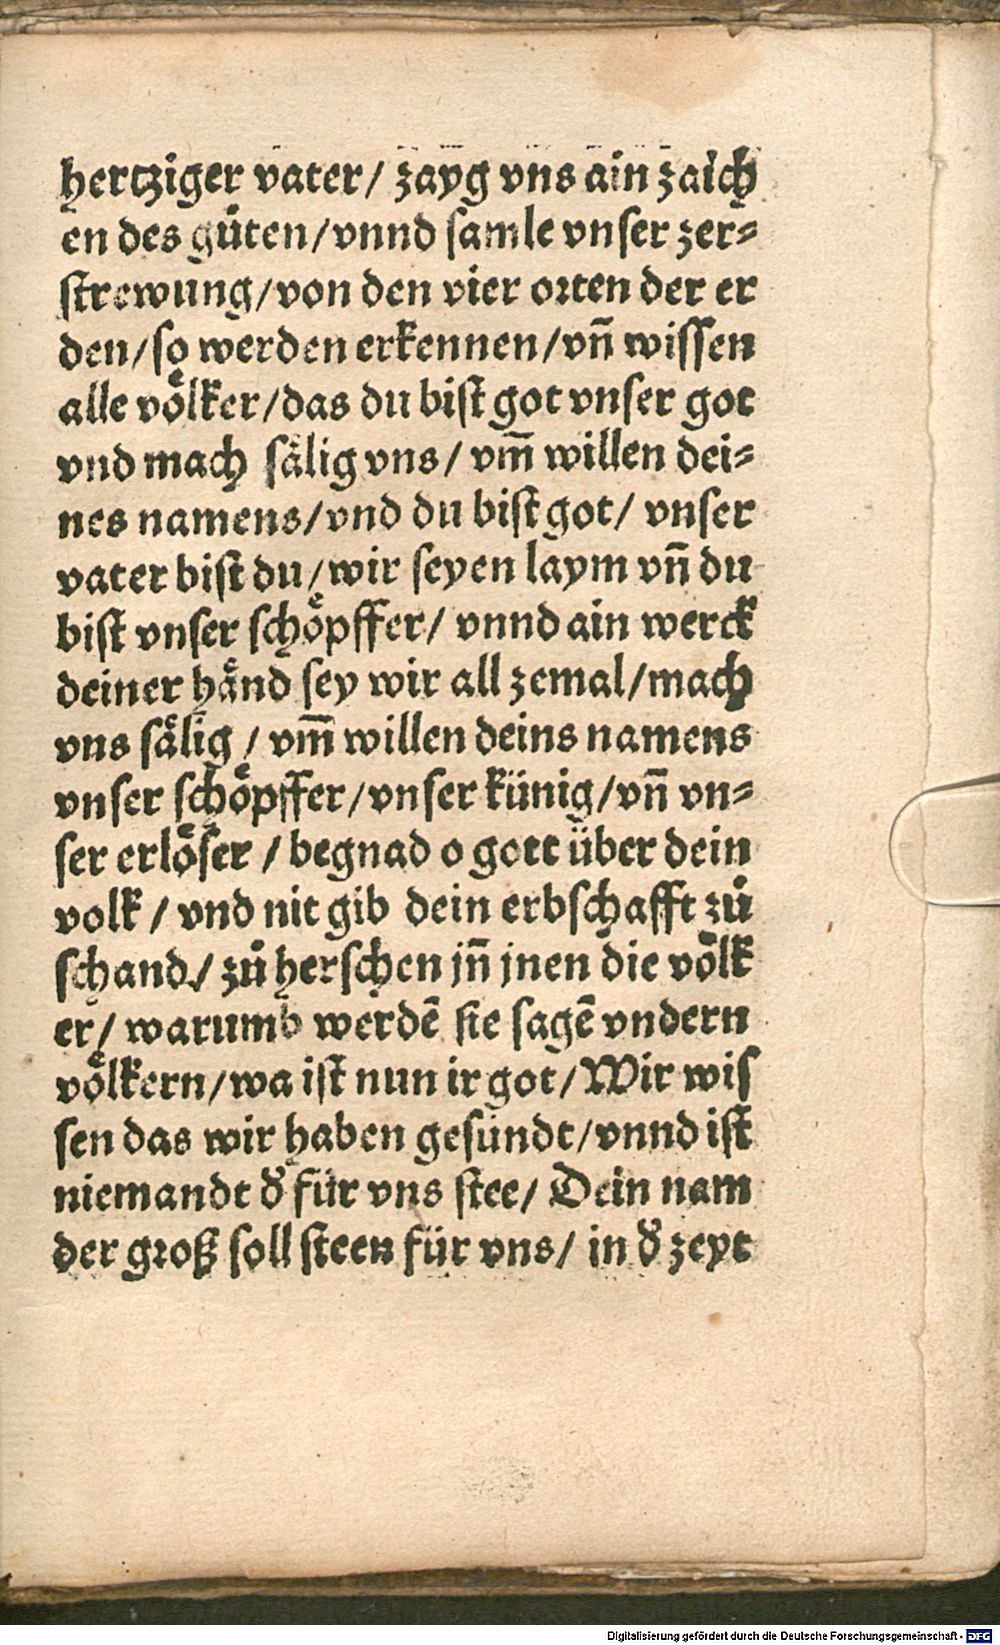 hertziger vater/ zayg vns ain zaich
en des gůten/vnnd samle vnser zer=
strewung/von den vier orten der er
den/so werden erkennen/vñ wissen
alle voͤlker/das du bist got vnser got
vnd mach saͤlig vns/ vm̄ willen dei=
nes namens/vnd du bist got/ vnser
vater bist du/wir seyen laym vñ du
bist vnser schoͤpffer/ vnnd ain werck
deiner haͤnd sey wir all zemal/mach
vns saͤlig / vm̄ willen deins namens
vnser schoͤpffer/vnser künig/vñ vn=
ser erloͤser / begnad o gott über dein
volk / vnd nit gib dein erbschafft zů
schand/ zů herschen jñ jnen die voͤlk
er/ warumb werdē sie sagē vndern
voͤlkern/wa ist nun ir got/Wir wis
sen das wir haben gesündt/vnnd ist
niemandt d̕ für vns stee/ Dein nam
der groß soll steen für vns/ in d̕ zeyt
Digitalisierung gefördert durch die Deutsche Forschungsgemeinschaft - DFG